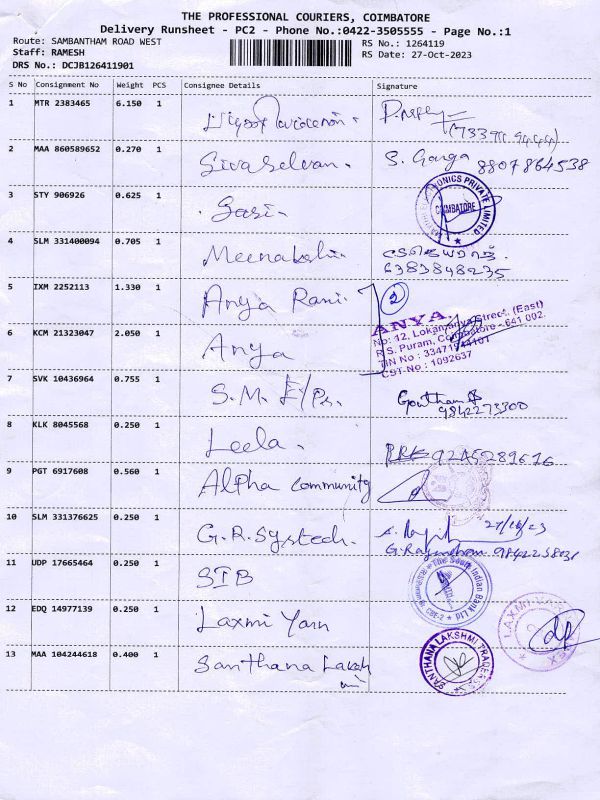 THE PROFESSIONAL COURIERS, COIMBATORE
Delivery Runsheet - PC2 - Phone No.:0422-3505555 - Page No.:1
Route: SAMBANTHAM ROAD WEST
RS No.: 1264119
Staff: RAMESH
RS Date: 27-Oct-2023
DRS No.: DCJB126411901
S No Consignment No Weight PCS Consignee Details Signature
1 MTR 2383465 6.150 1
2 MAA 860589652 0.270 1 Sivaselvan. S. Ganga 8807864538
3 STY 906926 0.625 1 Sasi. COIMBATORE
4 SLM 331400094 0.705 1 Meenakshi.
6383848235
5 IXM 2252113 1.330 1 Anya Rani. 2
ANYA.
No: 12, Lokamanya Street, (East)
R.S. Puram, Coimbatore - 641 002.
CST No : 1092637
6 KCM 21323047 2.050 1 Anya
7 SVK 10436964 0.755 1 S.M. Gowtham
9842273300
8 KLK 8045568 0.250 1 Leela.
9 PGT 6917608 0.560 1 Alpha community
10 SLM 331376625 0.250 1 G.R. Systech. 27/10/23
11 UDP 17665464 0.250 1 SIB The South Indian Bank Ltd
12 EDQ 14977139 0.250 1 Laxmi Yarn LAXMI
13 MAA 104244618 0.400 1 Santhana Laksh
mi SANTHANA LAKSHMI TRADERS